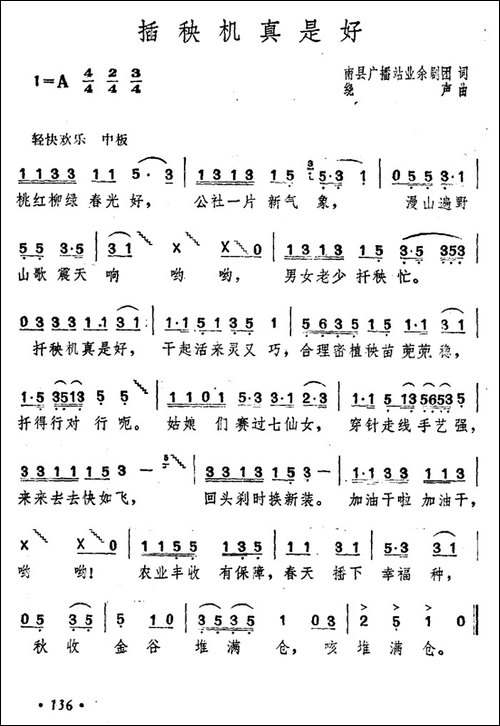 插秧机真是好
1=A 4/4 2/4 3/4 南县广播站业余剧团 词
绕声 曲
轻快欢乐 中板
1133 11 5·3 | 1313 15 3 | 0553 3·1
桃红柳绿春光好， 公社一片新气象， 漫山遍野
55 3·5 | 31 | X X 0 | 1313 15 | 3·5 353
山歌震天响 哟哟， 男女老少扦秧忙。
0333 1·131 | 1·15 135 | 5635 1·1 31
扦秧机真是好， 干起活来灵又巧，合理密植秧苗蔸蔸稳，
1·5 3513 5 | 1101 5·3 3·231 | 1·5 135653 5
扦得行对行呃。 姑娘们赛过七仙女， 穿针走线手艺强，
3311 115 — 5 | 3313 5·315 3 | 1·133 1·1 31
来来去去快如飞， 回头刹时换新装。 加油干啦加油干，
X X 0 | 1155 135 | 1·1 31 | 5·3 31
哟哟！ 农业丰收有保障， 春天播下幸福种，
035 32 | 2 5 | 3535 3 0 | 2 5 1 0
秋收金谷堆满仓，咳堆满仓。
· 136 ·